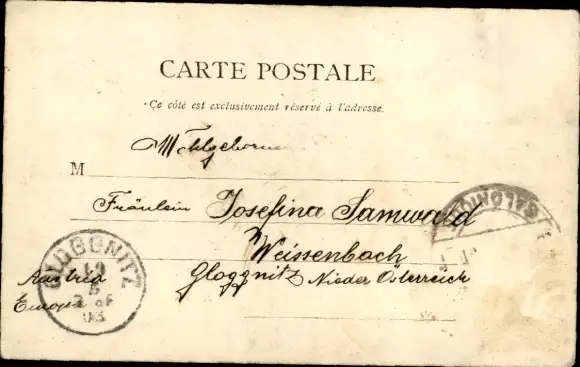 CARTE POSTALE
Ce côté est exclusivement réservé à l'adresse.
Wohlgeboren
M
Fräulein Josefina Samwald
Weissenbach
Gloggnitz Nieder Österreich
Austria
Europe
GLOGGNITZ
19
5
03